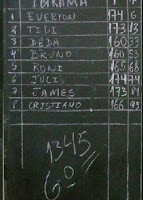 1 EVERTON 174 6
2 TIDI 173 13
3 DEDA 160 33
4 BRUNO 160 53
5 RONI 165 66
6 JULIS 174 74
7 JAMES 173 81
8 CRISTIANO 166 93
1345
60